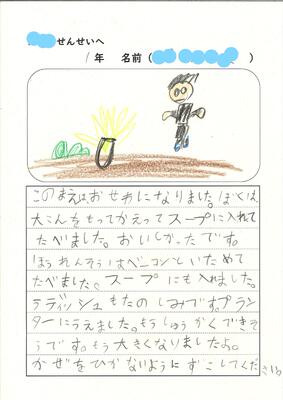 せんせいへ
1年 名前(
このまえはおせわになりました。ぼくは
大こんをもってかえってスープに入れて
たべました。おいしかったです。
ほうれんそうはベーコンといためて
たべました。スープにも入れました。
ラディッシュもたのしみです。プラン
ターにうえました。もうしゅうかくできそ
うです。もう大きくなりましたよ。
かぜをひかないようにすごしてくださいね